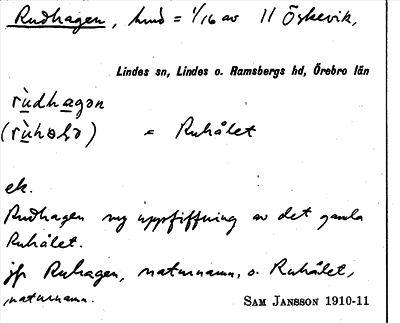 Rudhagen, hmd = 1/16 av 11 Öskevik,
Lindes sn, Lindes o. Ramsbergs hd, Örebro län
rùdhagən
(rùhələ) = Ruhålet
ek.
Rudhagen ny uppsiffning av det gamla
Ruhålet.
jfr Ruhagen, naturnamn, o. Ruhålet,
naturnamn.
SAM JANSSON 1910-11